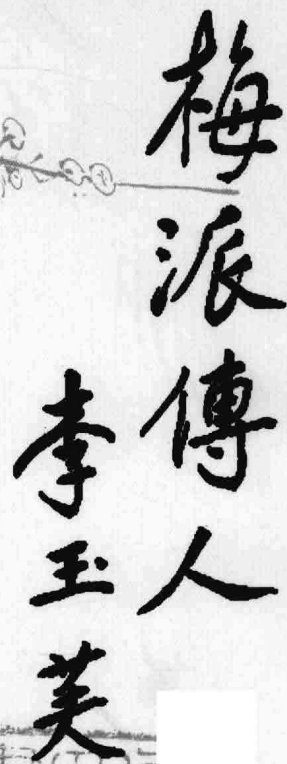 梅派傳人
李玉芙